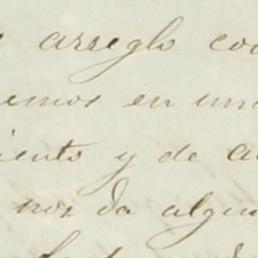 e arreglo con
emos en una
iento y de a
nos da algu